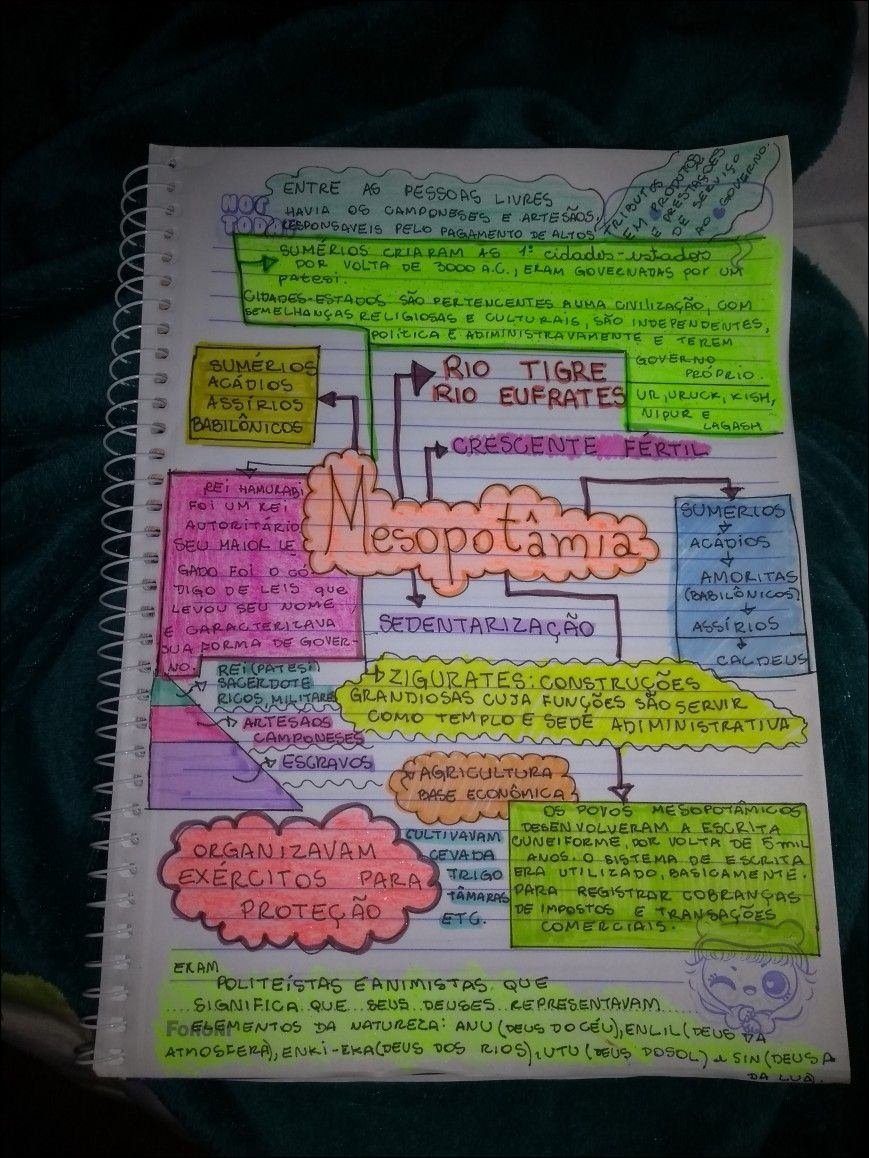 NOT TODAY
ENTRE AS PESSOAS LIVRES
HAVIA OS CAMPONESES E ARTESÃOS,
RESPONSAVEIS PELO PAGAMENTO DE ALTOS
TRIBUTOS
EM PRODUTOS
E PRESTAÇÕES
DE SERVIÇO
AO GOVERNO.
SUMÉRIOS CRIARAM AS 1ª cidades-estados
POR VOLTA DE 3000 A.C., ERAM GOVERNADAS POR UM
Patesi.
CIDADES-ESTADOS SÃO PERTENCENTES A UMA CIVILIZAÇÃO, COM
SEMELHANÇAS RELIGIOSAS E CULTURAIS, SÃO INDEPENDENTES,
POLÍTICA E ADIMINISTRAVAMENTE E TEREM
GOVERNO
PRÓPRIO.
UR, URUCK, KISH,
NIPUR E
LAGASH
SUMÉRIOS
ACÁDIOS
ASSÍRIOS
BABILÔNICOS
RIO TIGRE
RIO EUFRATES
CRESCENTE FÉRTIL
REI HAMURABI
FOI UM REI
AUTORITÁRIO
SEU MAIOR LE
GADO FOI O CÓ
DIGO DE LEIS que
LEVOU SEU NOME
E CARACTERIZAVA
SUA FORMA DE GOVER-
NO.
Mesopotâmia
SUMÉRIOS
ACÁDIOS
AMORITAS
(BABILÔNICOS)
ASSÍRIOS
CALDEUS
SEDENTARIZAÇÃO
REI (PATESI)
SACERDOTE
RICOS, MILITARES
ARTESÃOS
CAMPONESES
ESCRAVOS
ZIGURATES: CONSTRUÇÕES
GRANDIOSAS CUJA FUNÇÕES SÃO SERVIR
COMO TEMPLO E SEDE ADIMINISTRATIVA
AGRICULTURA
BASE ECONÔMICA
CULTIVAVAM
CEVADA
TRIGO
TÂMARAS
ETC.
ORGANIZAVAM
EXÉRCITOS PARA
PROTEÇÃO
OS POVOS MESOPOTÂMICOS
DESENVOLVERAM A ESCRITA
CUNEIFORME, POR VOLTA DE 5 mil
ANOS. O SISTEMA DE ESCRITA
ERA UTILIZADO, BASICAMENTE.
PARA REGISTRAR COBRANÇAS
DE IMPOSTOS E TRANSAÇÕES
COMERCIAIS.
ERAM
POLITEÍSTAS E ANIMISTAS QUE
SIGNIFICA QUE SEUS DEUSES REPRESENTAVAM
ELEMENTOS DA NATUREZA: ANU (DEUS DO CÉU), ENLIL (DEUS DA
ATMOSFERA), ENKI-EKA (DEUS DOS RIOS), UTU (DEUS DO SOL) e SIN (DEUSA
DA LUA).